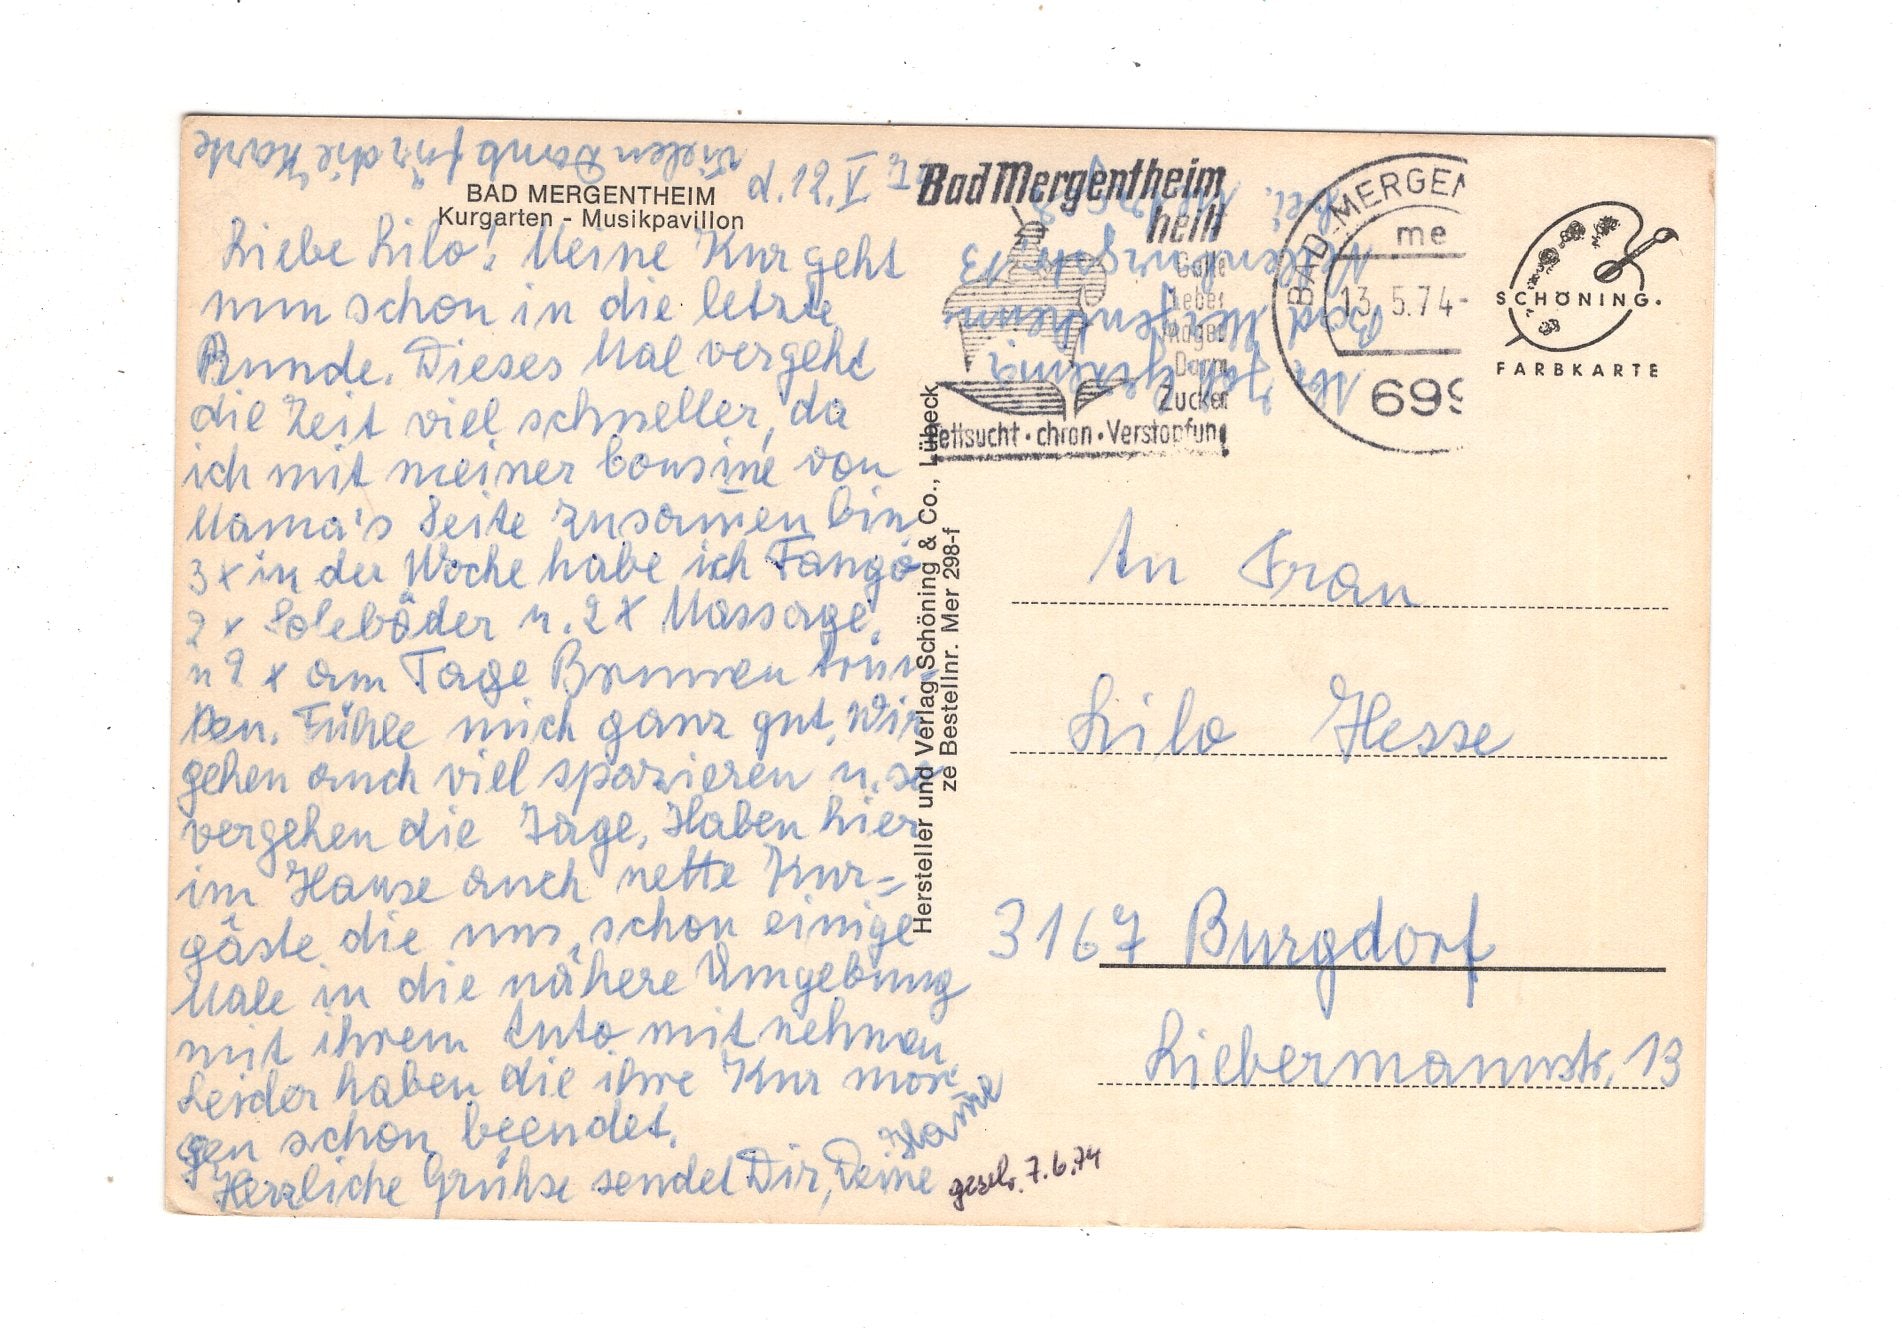 Vielen Dank für die Karte
d. 12. V. 74
BAD MERGENTHEIM
Kurgarten - Musikpavillon
Liebe Lilo! Meine Kur geht
nun schon in die letzte
Runde. Dieses Mal vergeht
die Zeit viel schneller, da
ich mit meiner Cousine von
Mama's Seite zusamen bin,
3 x in der Woche habe ich Fango
2 x Solebäder u. 2 x Massage,
u 2 x am Tage Brunnen trin
ken. Fühle mich ganz gut, Wir
gehen auch viel spazieren u. so
vergehen die Tage, Haben hier
im Hause auch nette Kur=
gäste die uns, schon einige
Male in die nähere Umgebung
mit ihrem Auto mit nehmen.
Leider haben die ihre Kur mor
gen schon beendet.
Herzliche Grühse sendet Dir, Deine
Hanne
geschr. 7.6.74
Hersteller und Verlag Schöning & Co., Lübeck
ze Bestellnr. Mer 298-f
Bad Mergentheim
heilt
Galle
Leber
Magen
Darm
Zucker
Fettsucht · chron · Verstopfung
bei
13
Bad Mergentheim
BAD-MERGEN
me
13.5.74-
699
SCHÖNING.
FARBKARTE
An Frau
Lilo Hesse
3167 Burgdorf
Liebermannstr. 13